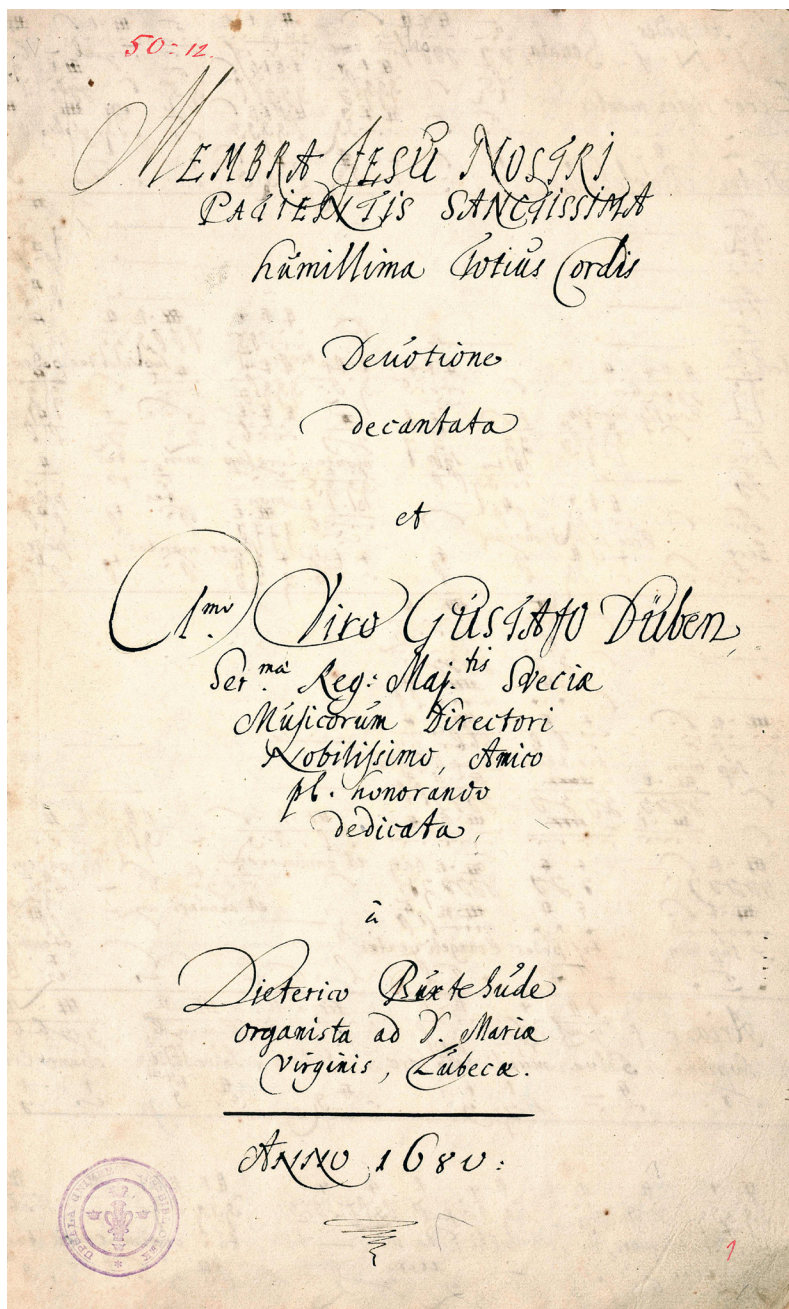 50:12.
MEMBRA JESU NOSTRI
PATIENTIS SANCTISSIMA
humillima Totius Cordis
Devotione
decantata
et
Clmo. Viro GUSTAVO Düben,
Ser.mâ Reg: Maj.tis Sveciæ
Musicorum Directori
Nobilissimo, Amico
pl. honorando
dedicata,
â
Dieterico Buxtehude
organista ad S. Mariæ
virginis, Lübecæ.
ANNO 1680:
UPSALA UNIVERSITETSBIBLIOTEK
1